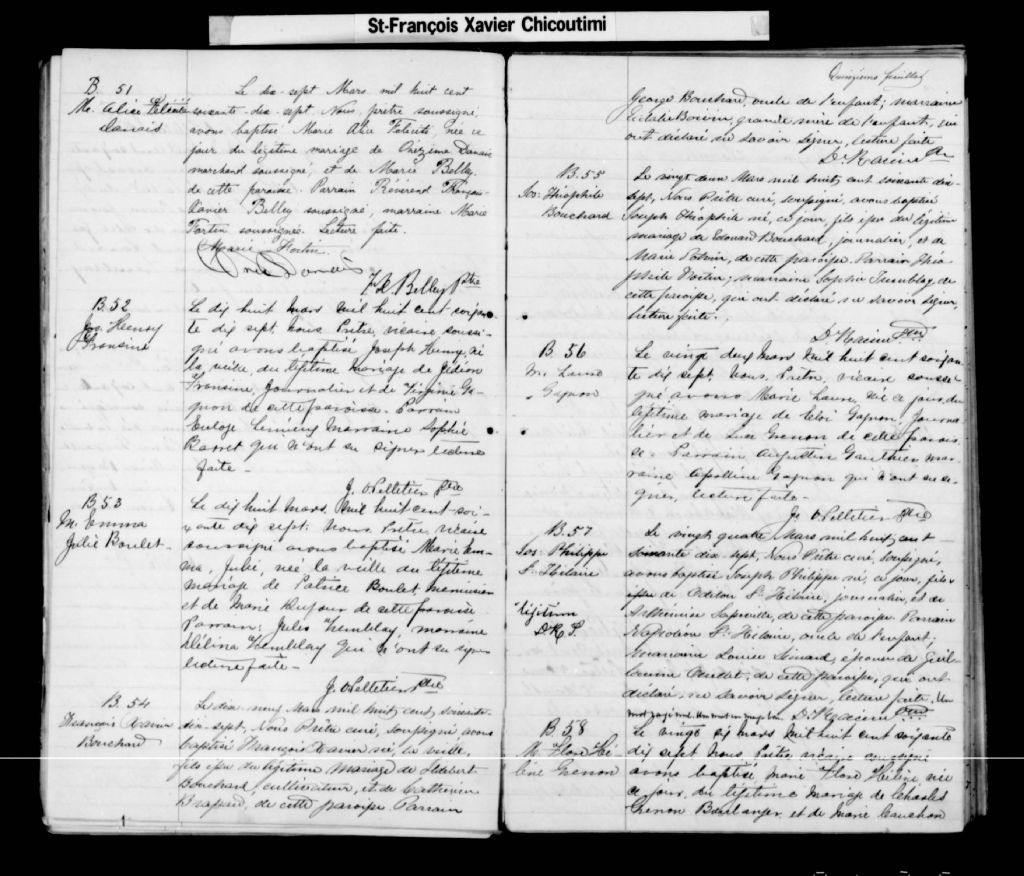 St-François Xavier Chicoutimi
B. 51
M. Alice Félicité
Danais
Le dix-sept Mars mil huit cent
soixante-dix-sept. Nous, prêtre soussigné,
avons baptisé Marie Alice Félicité, née ce
jour du légitime mariage de Onézime Danais
marchand soussigné, et de Marie Belley
de cette paroisse. Parrain Révérend François
Xavier Belley soussigné, marraine Marie
Fortin soussignée. Lecture faite.
Marie Fortin
F. X. Belley Ptre
B. 52
Jos. Henry
Fransine
Le dix huit mars mil huit cent soixan
te dix sept, nous Prêtre, vicaire soussi-
gné avons baptisé Joseph Henry, né
la veille du légitime mariage de Gédéon
Fransine, Journalier et de Virginie Ga-
gnon de cette paroisse. Parrain
Euloge marraine Sophie
qui n'ont su signer lecture
faite-
J. O Pelletier Ptre
B. 53
M. Emma
Julie Boulet-
Le dix huit mars, mil huit cent soi-
xante dix sept, nous, Prêtre, vicaire
soussigné avons baptisé Marie Em-
ma, Julie, née la veille du légitime
mariage de Patrice Boulet menuisier
et de Marie Dufour de cette paroisse
Parrain; Jules Tremblay, marraine
Délina Tremblay qui n'ont su signer
lecture faite-
J. O Pelletier Ptre
B. 54
François Xavier
Bouchard
Le dix neuf Mars mil huit cent, soixante-
dix-sept, Nous Prêtre curé, soussigné, avons
baptisé François Xavier né la veille,
fils issu du légitime mariage de
Bouchard, cultivateur, et de Catherine
Brassard, de cette paroisse Parrain
Quinzième feuillet
George Bouchard, oncle de l'enfant; marraine
Eulalie Boivin, grande mère de l'enfant, qui
ont déclaré ne savoir signer, lecture faite
D. Racine Ptre
B. 55
Jos. Théophile
Bouchard
Le vingt deux Mars mil huit cent soixante dix-
sept, Nous Prêtre curé, soussigné, avons baptisé
Joseph Théophile né, ce jour, fils issu du légitime
mariage de Edouard Bouchard, journalier, et de
Marie Potvin, de cette paroisse. Parrain Théo-
phile Potvin; marraine Sophie Tremblay de
cette paroisse, qui ont déclaré ne savoir signer,
lecture faite.
D. Racine Ptre
B. 56
M. Laure
Gagnon
Le vingt deux mars mil huit cent soixan-
te dix sept, nous, Prêtre, vicaire soussi-
gné avons Marie Laure, née ce jour, du
légitime mariage de Eloi Gagnon Journa-
lier et de Luce Grenon de cette parois-
se- Parrain Augustin Gauthier mar-
raine Apolline Gagnon qui n'ont su si-
gner, lecture faite-
J. O Pelletier Ptre
B. 57
Jos: Philippe
St Hilaire
légitime
D. R. P.
Le vingt quatre Mars mil huit cent
soixante dix-sept, Nous Prêtre curé, soussigné,
avons baptisé Joseph Philippe né, ce jour, fils
issu de Odilon St Hilaire, journalier, et de
de cette paroisse. Parrain
Napoléon St Hilaire, oncle de l'enfant;
marraine Louise Simard, épouse de Guil-
laume Ouellet, de cette paroisse, qui ont
déclaré, ne savoir signer, lecture faite. Un
D. Racine Ptre
B. 58
M. Flore Hé
line Grenon
Le vingt six mars mil huit cent soixante
dix sept nous Prêtre, vicaire soussigné
avons baptisé, marie Flore Héline née
ce jour, du légitime mariage de Charles
Grenon Boulanger, et de Marie Cauchon